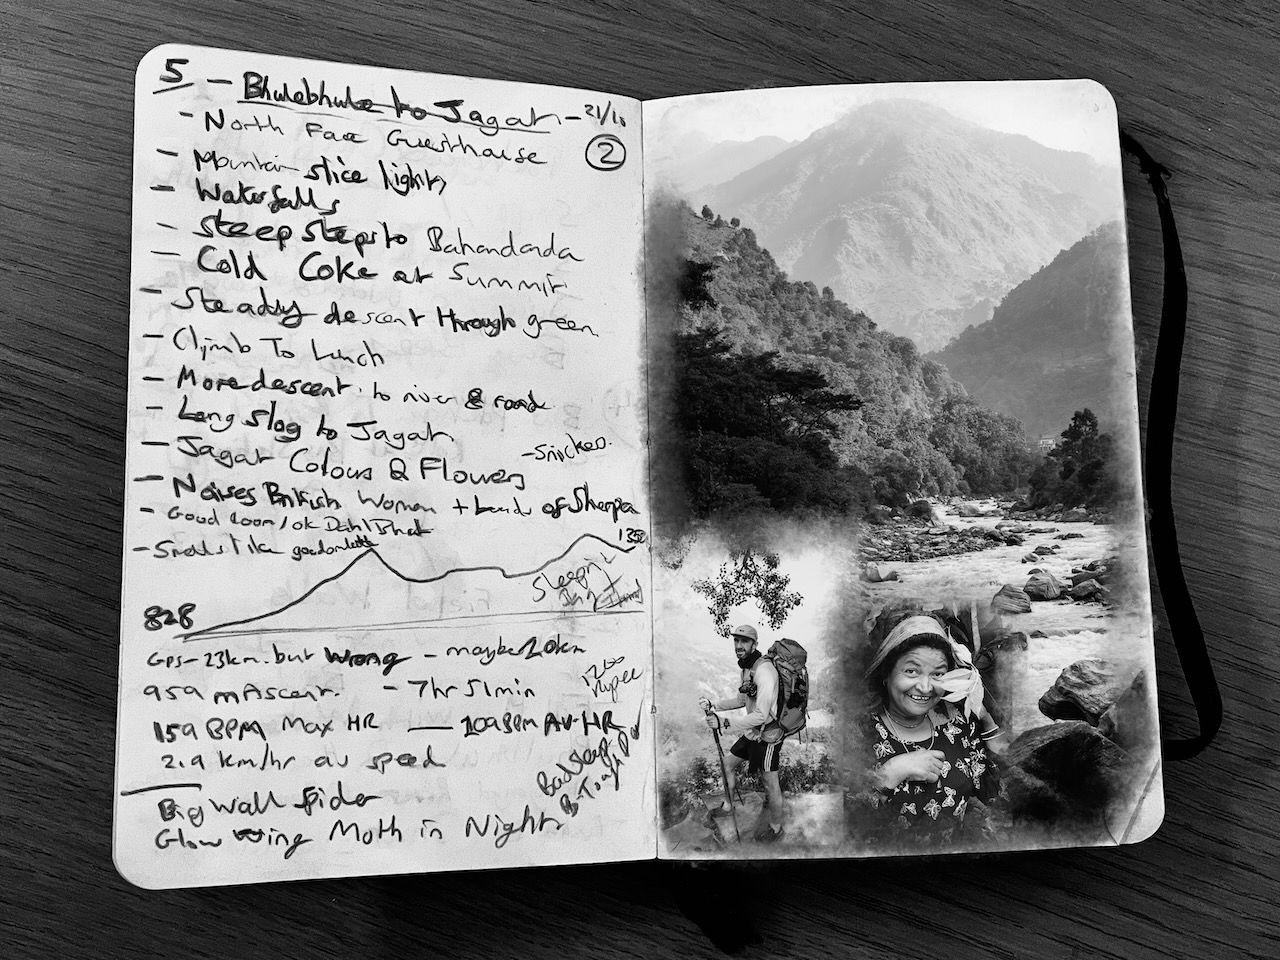 5 - Bhulebhule to Jagat - 21/10
②
- North Face Guesthouse
- Mountain slice lights
- Waterfalls
- Steep steps to Bahandada
- Cold Coke at Summit
- Steady descent through green
- Climb To Lunch
- More descent to river & road
- Long slog to Jagat
- Snickers.
- Jagat Colours & Flowers
- Noises British Women + of Sherpa
- Good room/ok Dahl Bhat
- Smells like
1350
Sleeping
828
GPS - 23km. but wrong - maybe 20km
959 m Ascent. - 7hr 51min
1200 rupee
159 BPM Max HR — 109 BPM Av HR
2.9 km/hr av speed
Bad sleep
Big Wall Spider
Glow wing Moth in Night